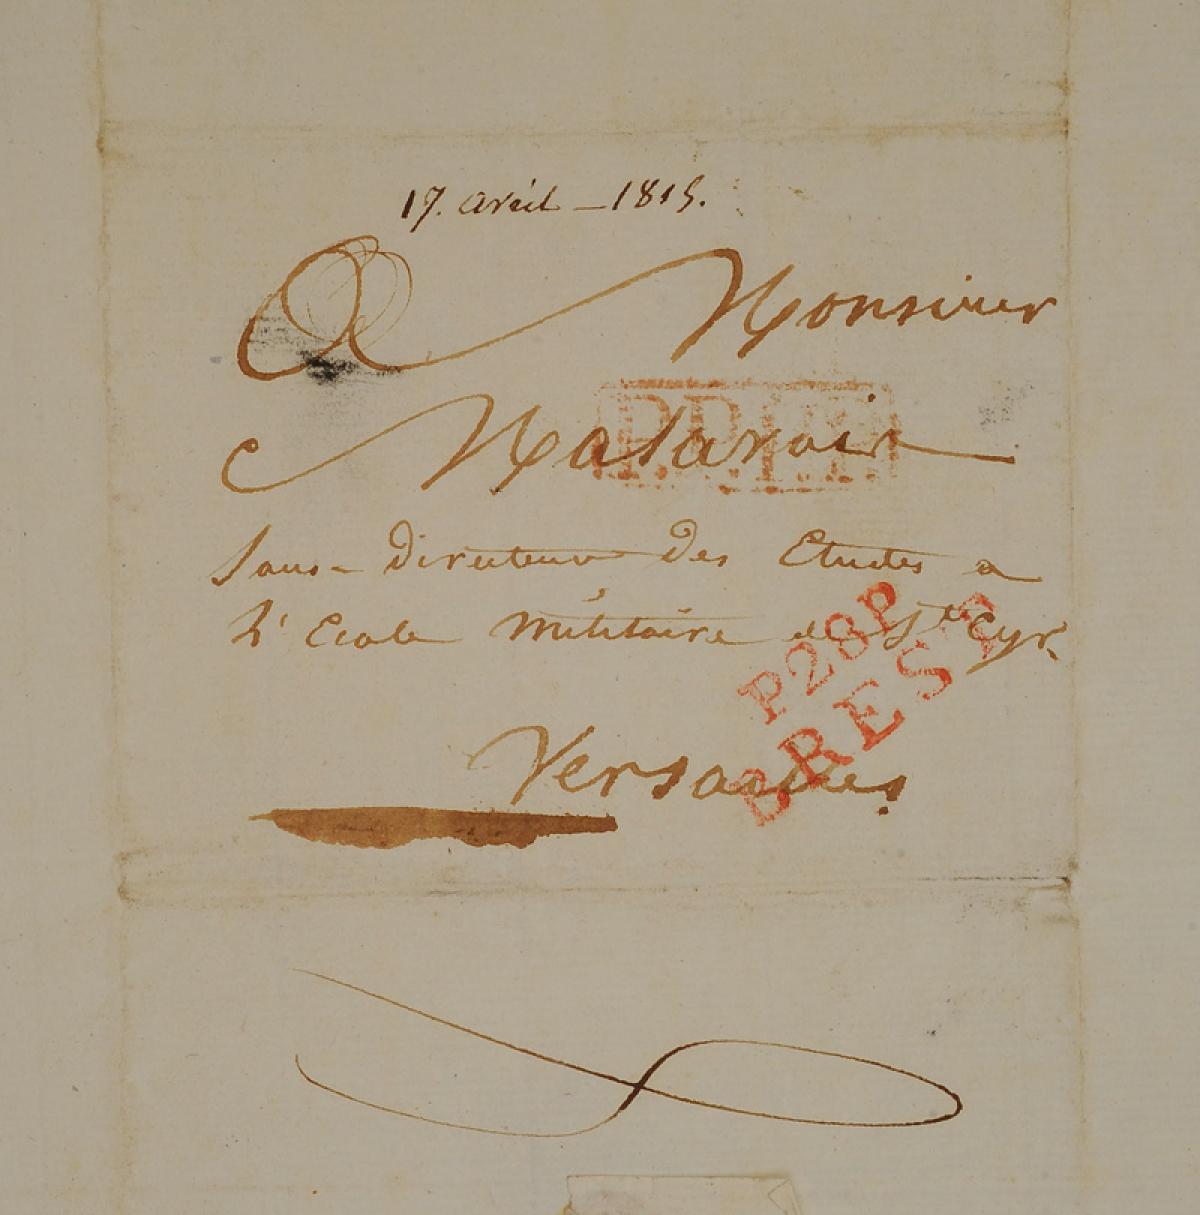 17. avril - 1815.
A Monsieur
P.P.P.P.
Sous-Directeur Des Etudes a
L'Ecole Militaire de St Cyr.
P28P
BREST
Versailles